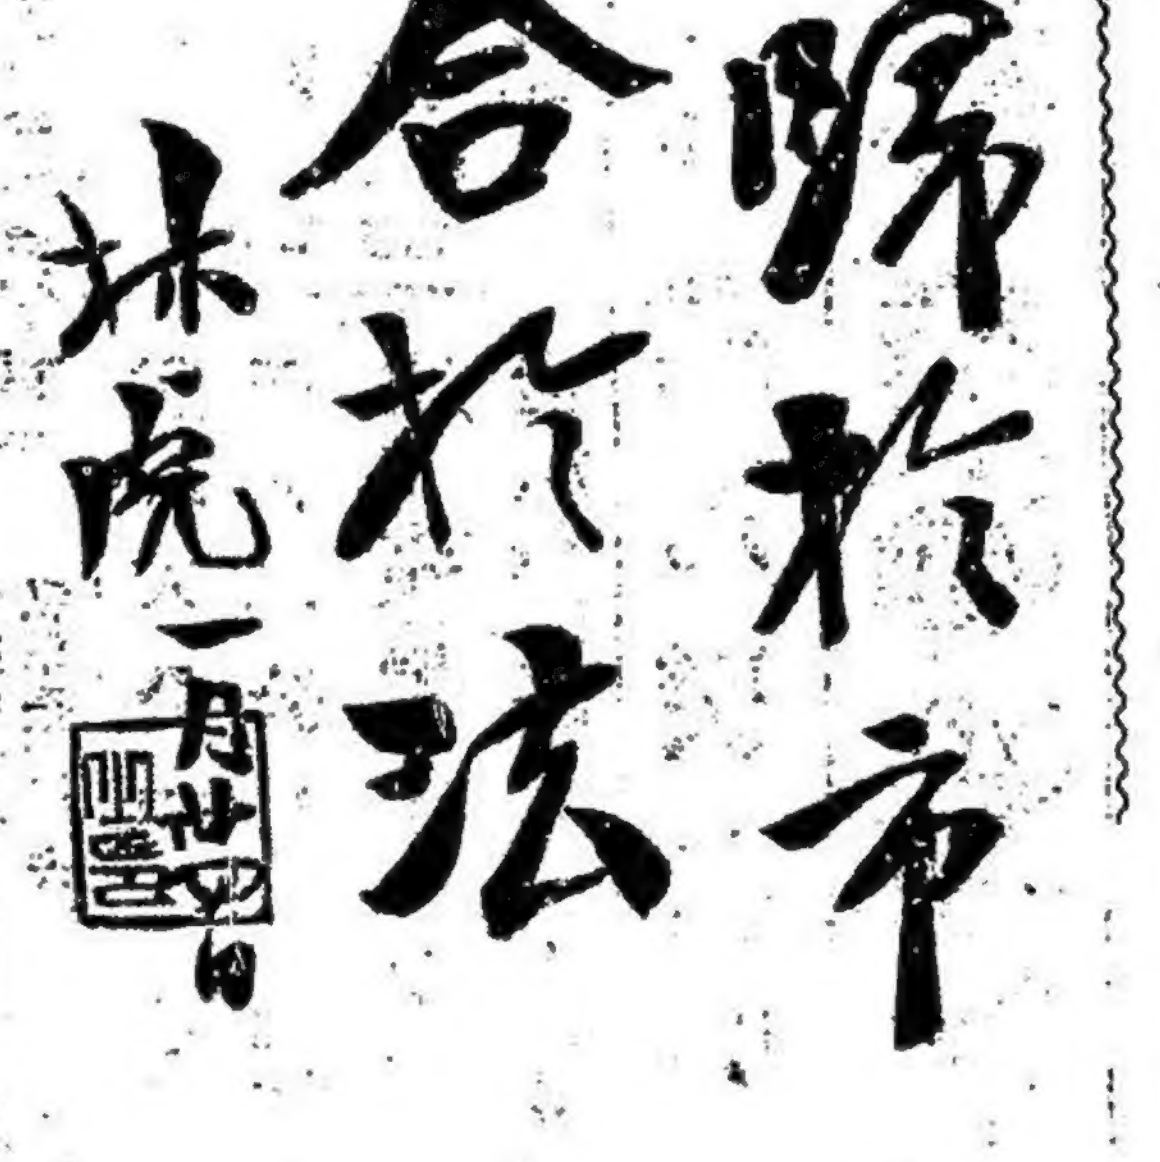 歸於市
合於法
林虎一月廿六日